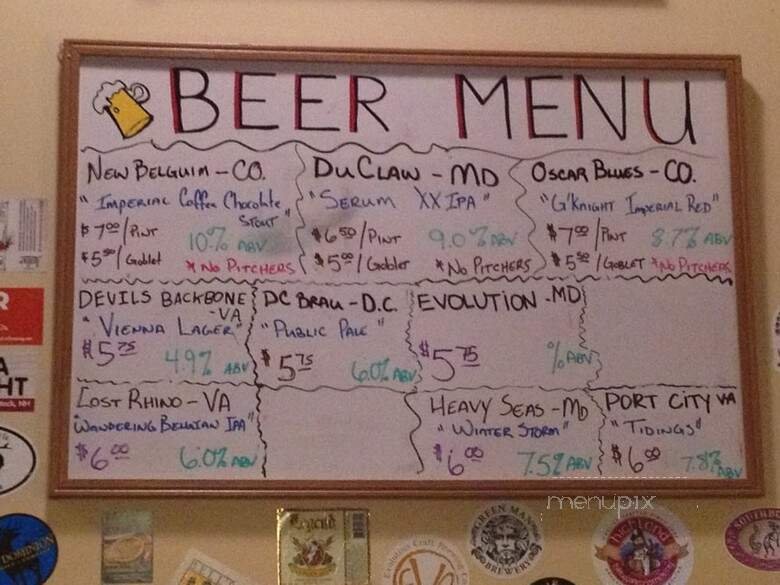 BEER MENU
NEW BELGUIM - CO.
"IMPERIAL Coffee Chocolate
STOUT"
$7.00/PINT 10% ABV
$5.50/Goblet *No PITCHERS
DUCLAW - MD
"SERUM XX IPA"
$6.50/PINT 9.0% ABV
$5.00/Goblet *No PITCHERS
OSCAR BLUES - CO.
"G'KNIGHT IMPERIAL RED"
$7.00/PINT 8.7% ABV
$5.50/GOBLET *No PITCHERS
DEVILS BACKBONE
-VA
"VIENNA LAGER"
$5.75 4.9% ABV
DC BRAU - D.C.
"PUBLIC PALE"
$5.75 6.0% ABV
EVOLUTION - MD
$5.75 % ABV
LOST RHINO - VA
"WANDERING BELGIAN IPA"
$6.00 6.0% ABV
HEAVY SEAS - MD
"WINTER STORM"
$6.00 7.5% ABV
PORT CITY VA
"TIDINGS"
$6.00 7.8% ABV
menupix
HT
Legend
GREEN MAN
BREWERY
Evolution Craft Brewing Co
DOMINION
Highland